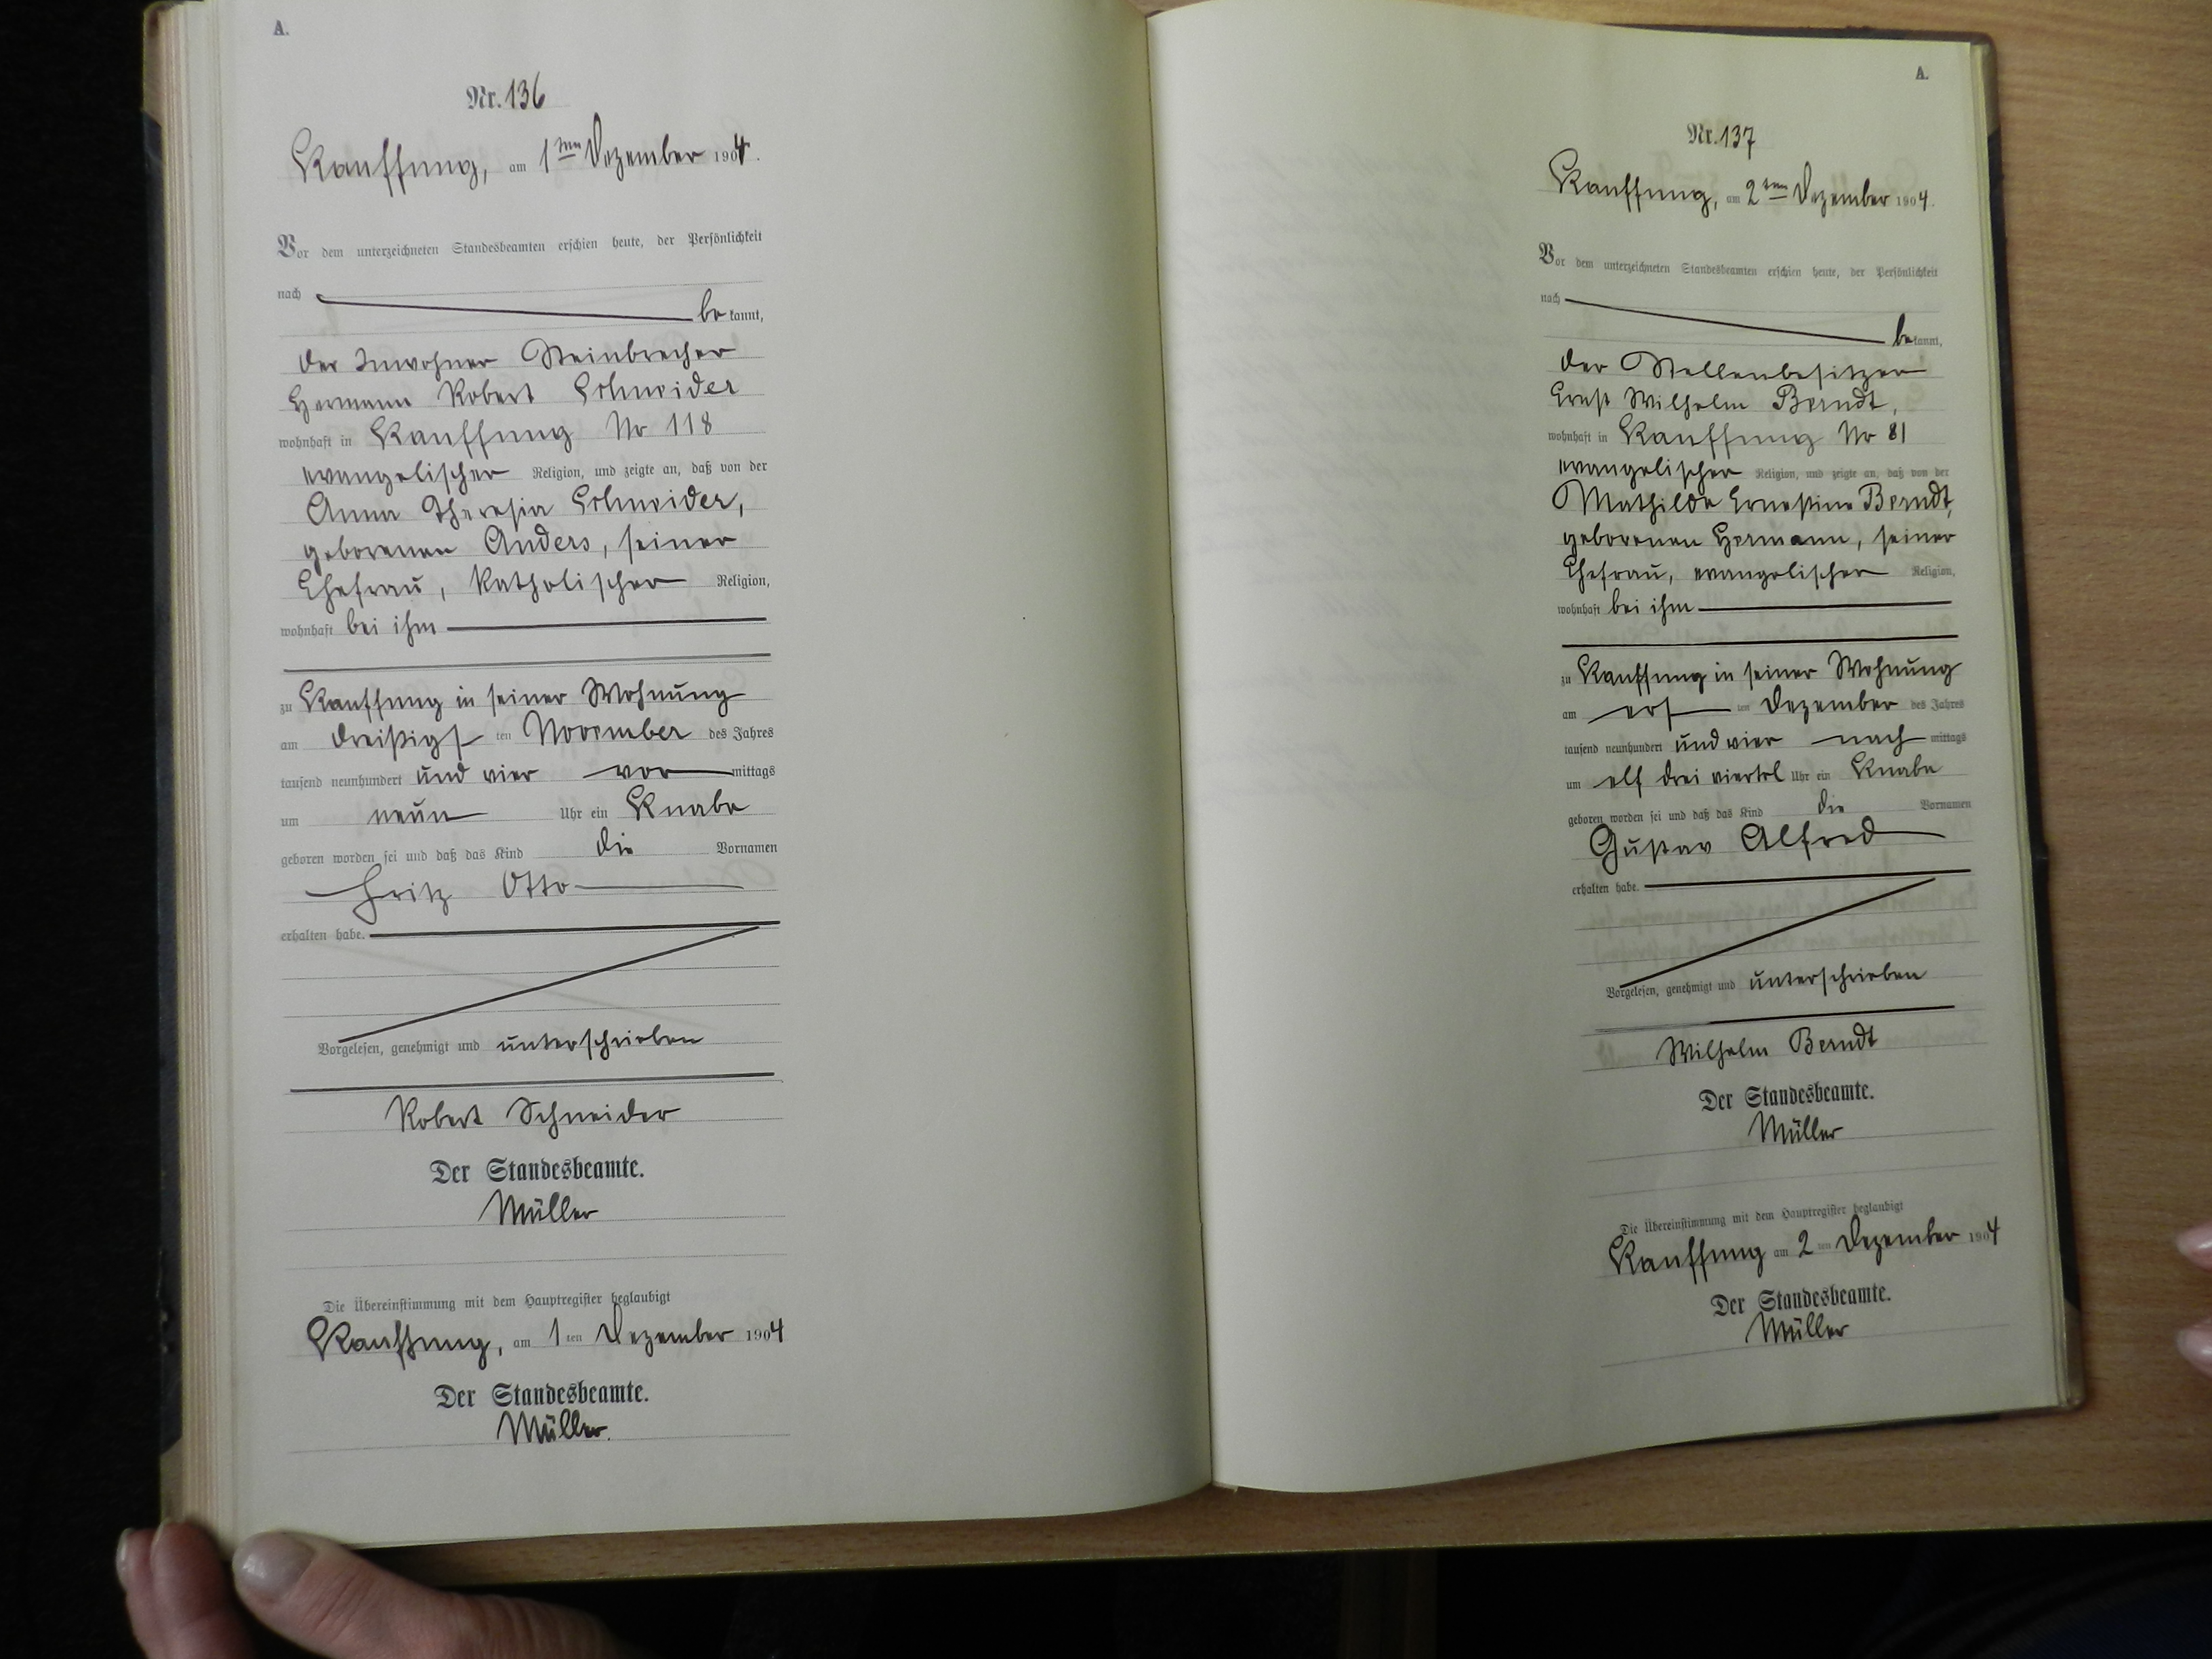 A.
Nr. 136
Kauffung, am 1ten Dezember 1904.
Vor dem unterzeichneten Standesbeamten erschien heute, der Persönlichkeit
nach
bekannt,
der Inwohner Steinbrecher
Hermann Robert Schneider
wohnhaft in Kauffung No 118
evangelischer Religion, und zeigte an, daß von der
Anna Theresia Schneider,
geborenen Anders, seiner
Ehefrau, katholischer Religion,
wohnhaft bei ihm
zu Kauffung in seiner Wohnung
am dreißigsten November des Jahres
tausend neunhundert und vier vormittags
um neun Uhr ein Knabe
geboren worden sei und daß das Kind die Vornamen
Fritz Otto
erhalten habe.
Vorgelesen, genehmigt und unterschrieben
Robert Schneider
Der Standesbeamte.
Müller
Die Übereinstimmung mit dem Hauptregister beglaubigt
Kauffung, am 1ten Dezember 1904
Der Standesbeamte.
Müller.
A.
Nr. 137
Kauffung, am 2ten Dezember 1904.
Vor dem unterzeichneten Standesbeamten erschien heute, der Persönlichkeit
nach
bekannt,
der Stellenbesitzer
Ernst Wilhelm Berndt,
wohnhaft in Kauffung No 81
evangelischer Religion, und zeigte an, daß von der
Mathilde Ernestine Berndt,
geborenen Hermann, seiner
Ehefrau, evangelischer Religion,
wohnhaft bei ihm
zu Kauffung in seiner Wohnung
am ersten Dezember des Jahres
tausend neunhundert und vier nachmittags
um elf drei viertel Uhr ein Knabe
geboren worden sei und daß das Kind die Vornamen
Gustav Alfred
erhalten habe.
Vorgelesen, genehmigt und unterschrieben
Wilhelm Berndt
Der Standesbeamte.
Müller
Die Übereinstimmung mit dem Hauptregister beglaubigt
Kauffung am 2ten Dezember 1904
Der Standesbeamte.
Müller